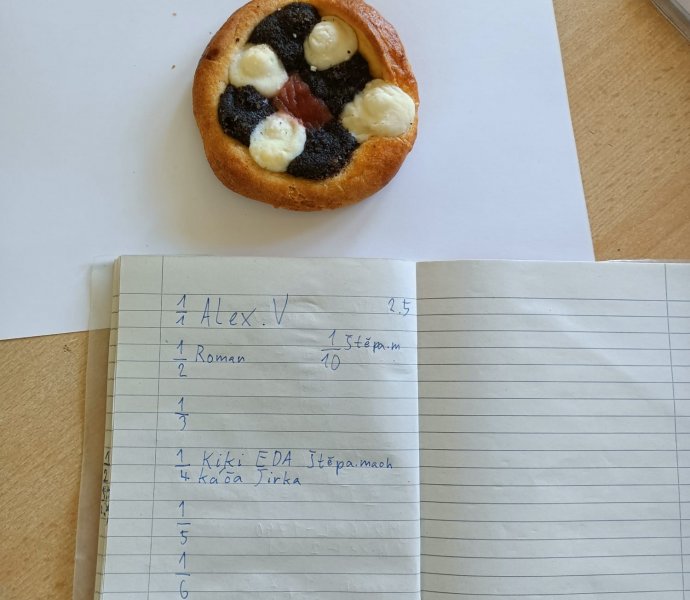 1/1 Alex.V 2.5
1/2 Roman 1/10 Štěpa.m
1/3
1/4 Kiki EDA Štěpa.mach
kača Jirka
1/5
1/6